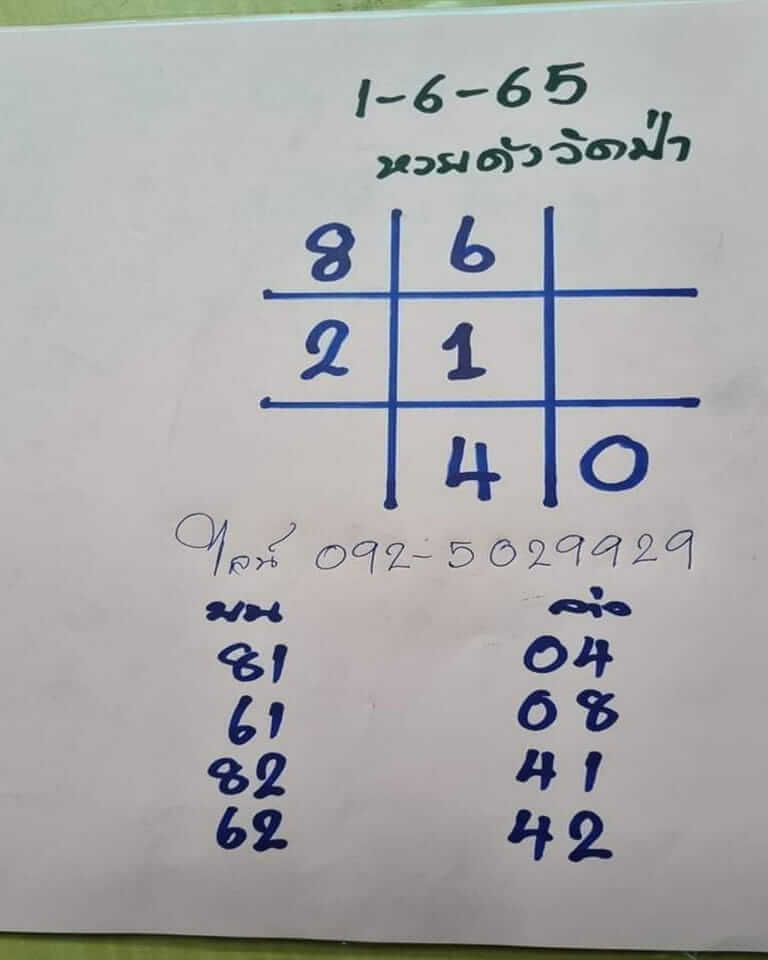 1-6-65
หวยดังวัดป่า
8 6
2 1
4 0
ไลน์ 092-5029929
บน ล่าง
81 04
61 08
82 41
62 42